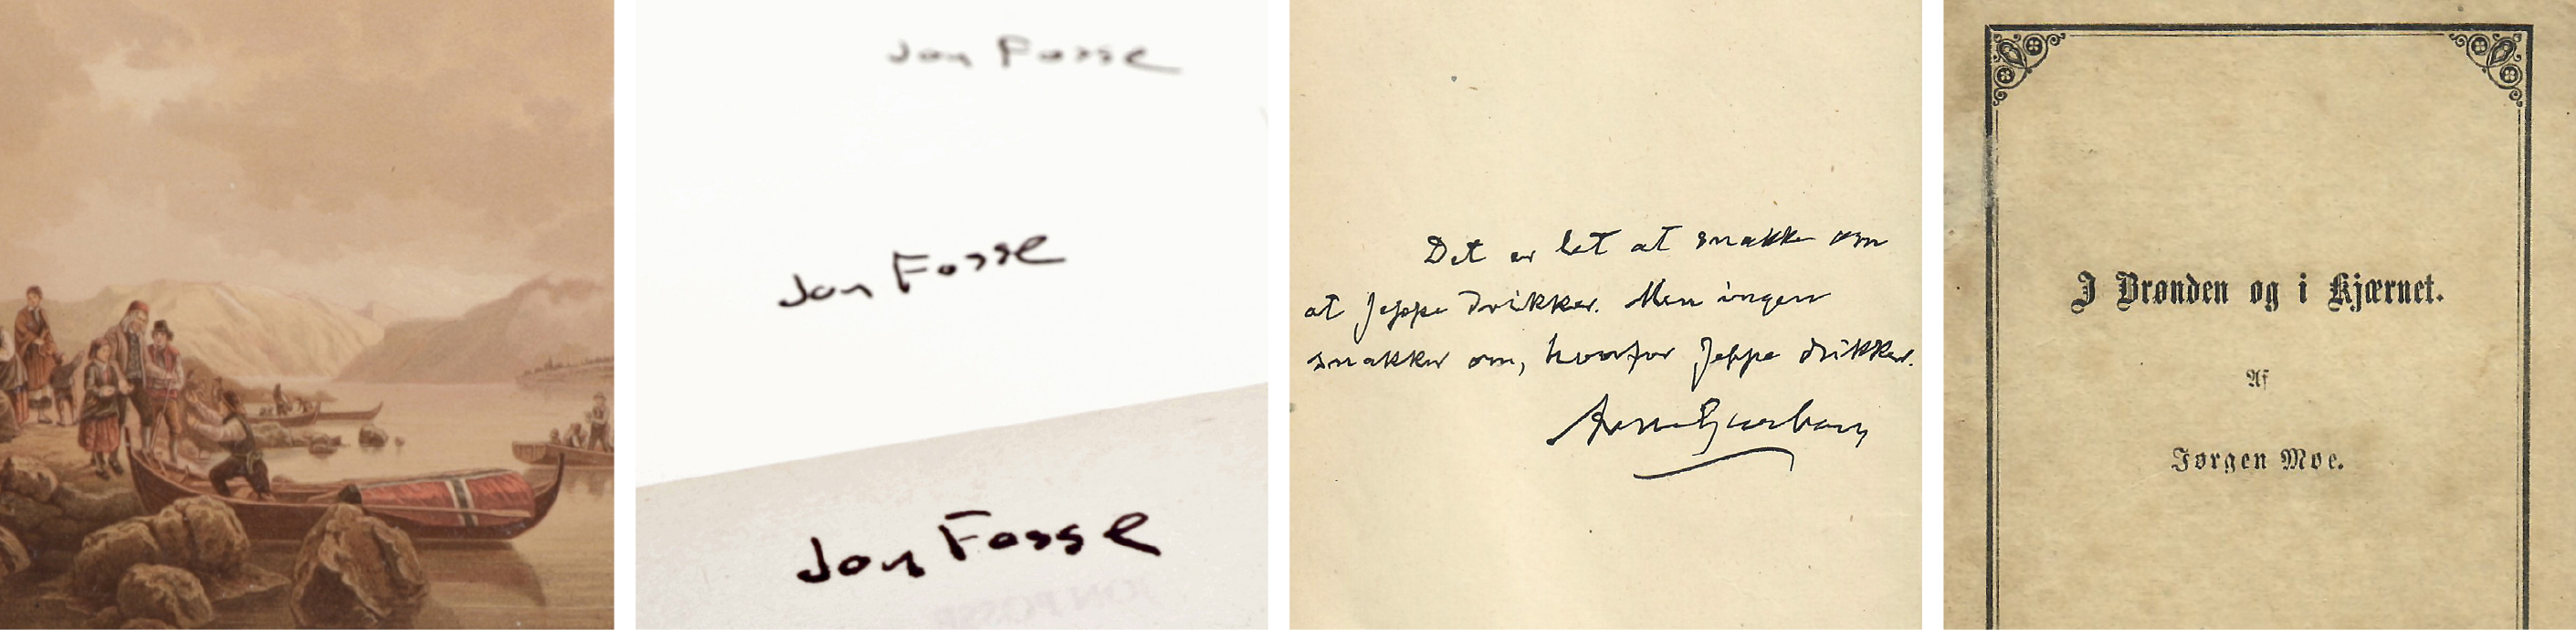 Jon Fosse
Jon Fosse
Jon Fosse
JON FOSSE
Det er let at snakke om
at Jeppe drikker. Men ingen
snakker om, hvorfor Jeppe drikker.
Arne Garborg
I Brønden og i Kjærnet.
Af
Jørgen Moe.